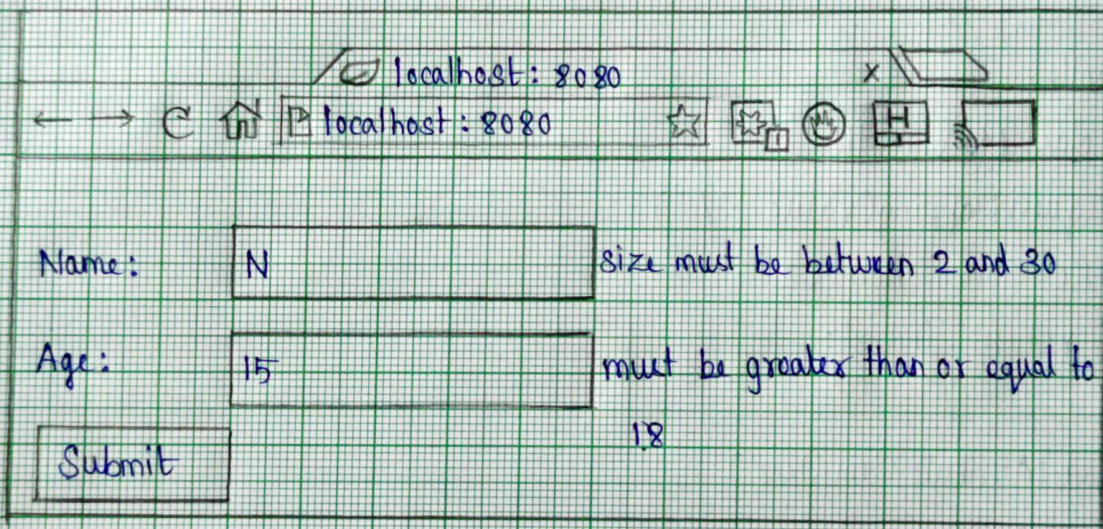 localhost: 8080 x
localhost: 8080
Name: N size must be between 2 and 30
Age: 15 must be greater than or equal to
18
Submit